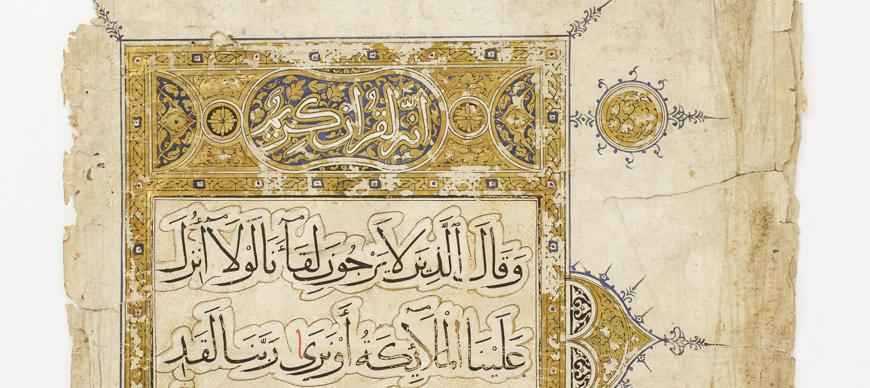 إنه لقرآن كريم
وَقَالَ ٱلَّذِينَ لَا يَرْجُونَ لِقَآءَنَا لَوْلَآ أُنزِلَ
عَلَيْنَا ٱلْمَلَٰٓئِكَةُ أَوْ نَرَىٰ رَبَّنَا لَقَدِ